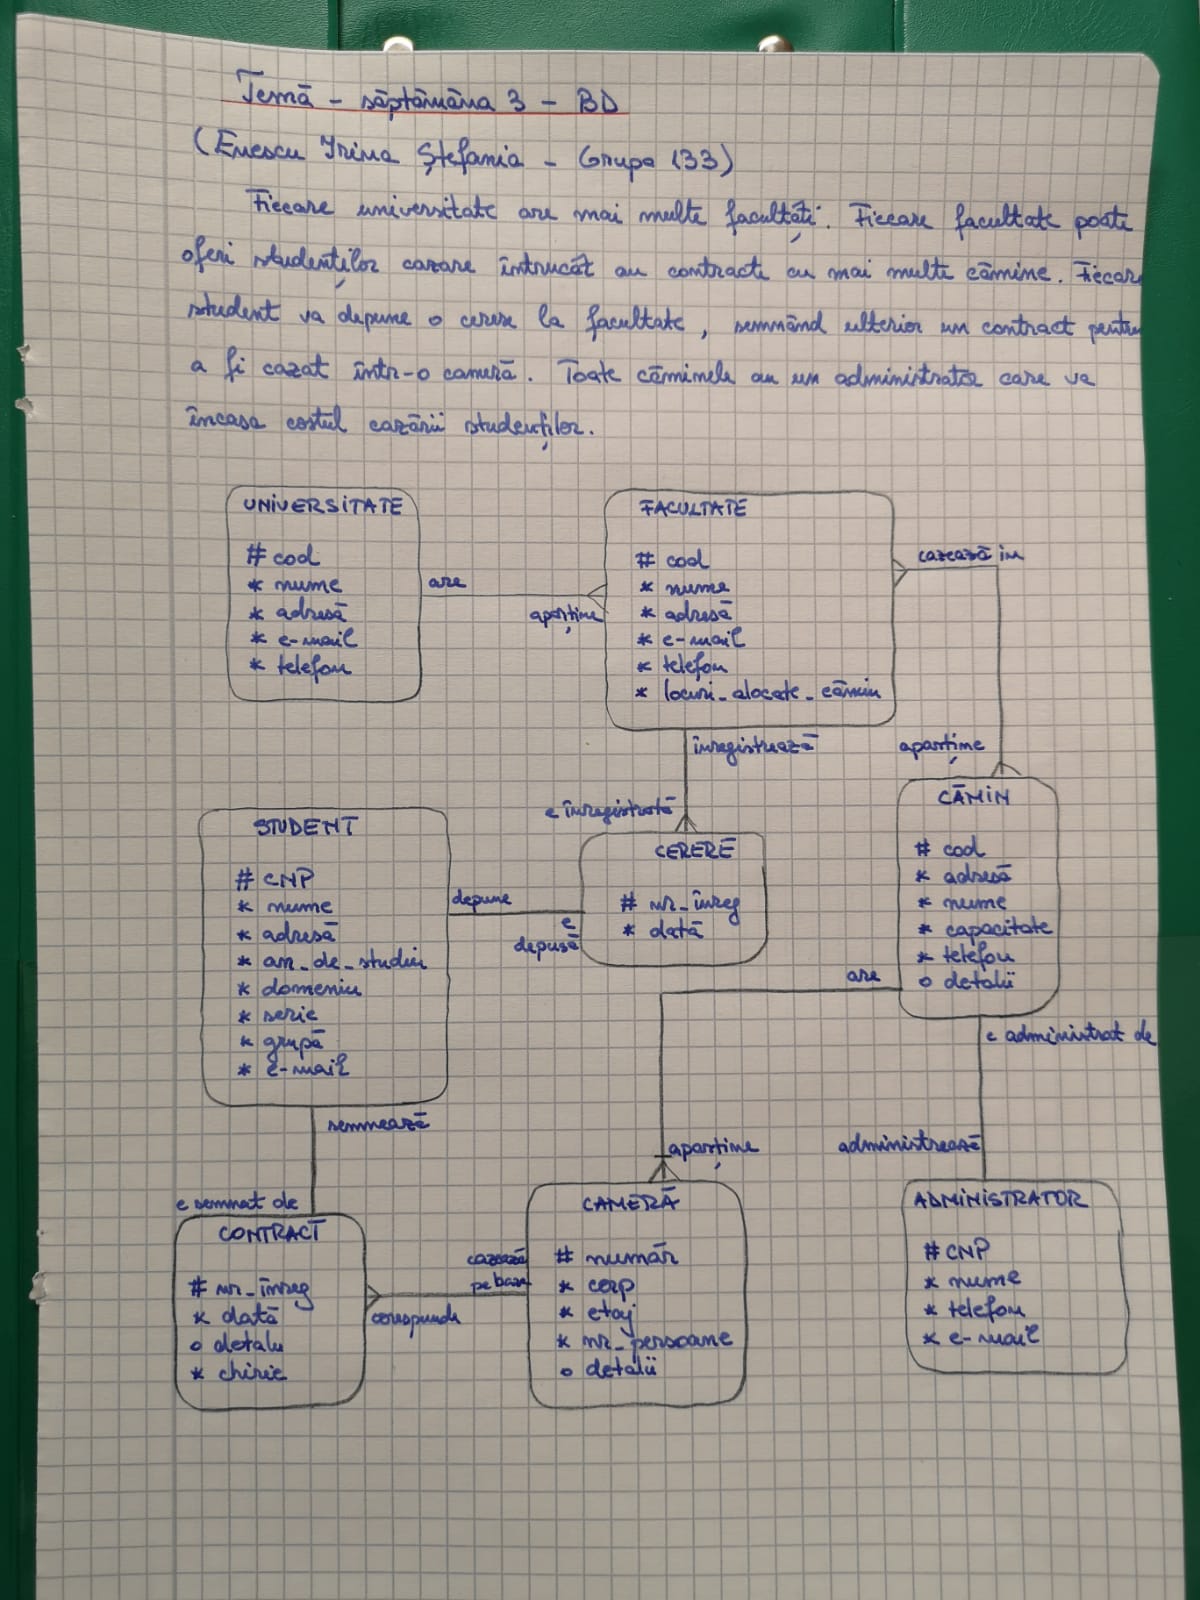 Temă - săptămâna 3 - BD
(Enescu Irina Ștefania - Grupa 133)
Fiecare universitate are mai multe facultăți. Fiecare facultate poate
oferi studenților cazare întrucât au contracte cu mai multe cămine. Fiecare
student va depune o cerere la facultate, semnând ulterior un contract pentru
a fi cazat într-o cameră. Toate căminele au un administrator care va
încasa costul cazării studenților.
UNIVERSITATE
# cod
* nume
* adresă
* e-mail
* telefon
are
aparține
FACULTATE
# cod
* nume
* adresă
* e-mail
* telefon
* locuri_alocate_cămin
cazează în
aparține
înregistrează
e înregistrată
STUDENT
# CNP
* nume
* adresă
* an_de_studiu
* domeniu
* serie
* grupă
* e-mail
depune
e
depusă
CERERE
# nr_înreg
* dată
CĂMIN
# cod
* adresă
* nume
* capacitate
* telefon
o detalii
are
aparține
e administrat de
administrează
semnează
e semnat de
CONTRACT
# nr_înreg
* dată
o detalii
* chirie
corespunde
cazează
pe baza
CAMERĂ
# număr
* corp
* etaj
* nr_persoane
o detalii
ADMINISTRATOR
# CNP
* nume
* telefon
* e-mail